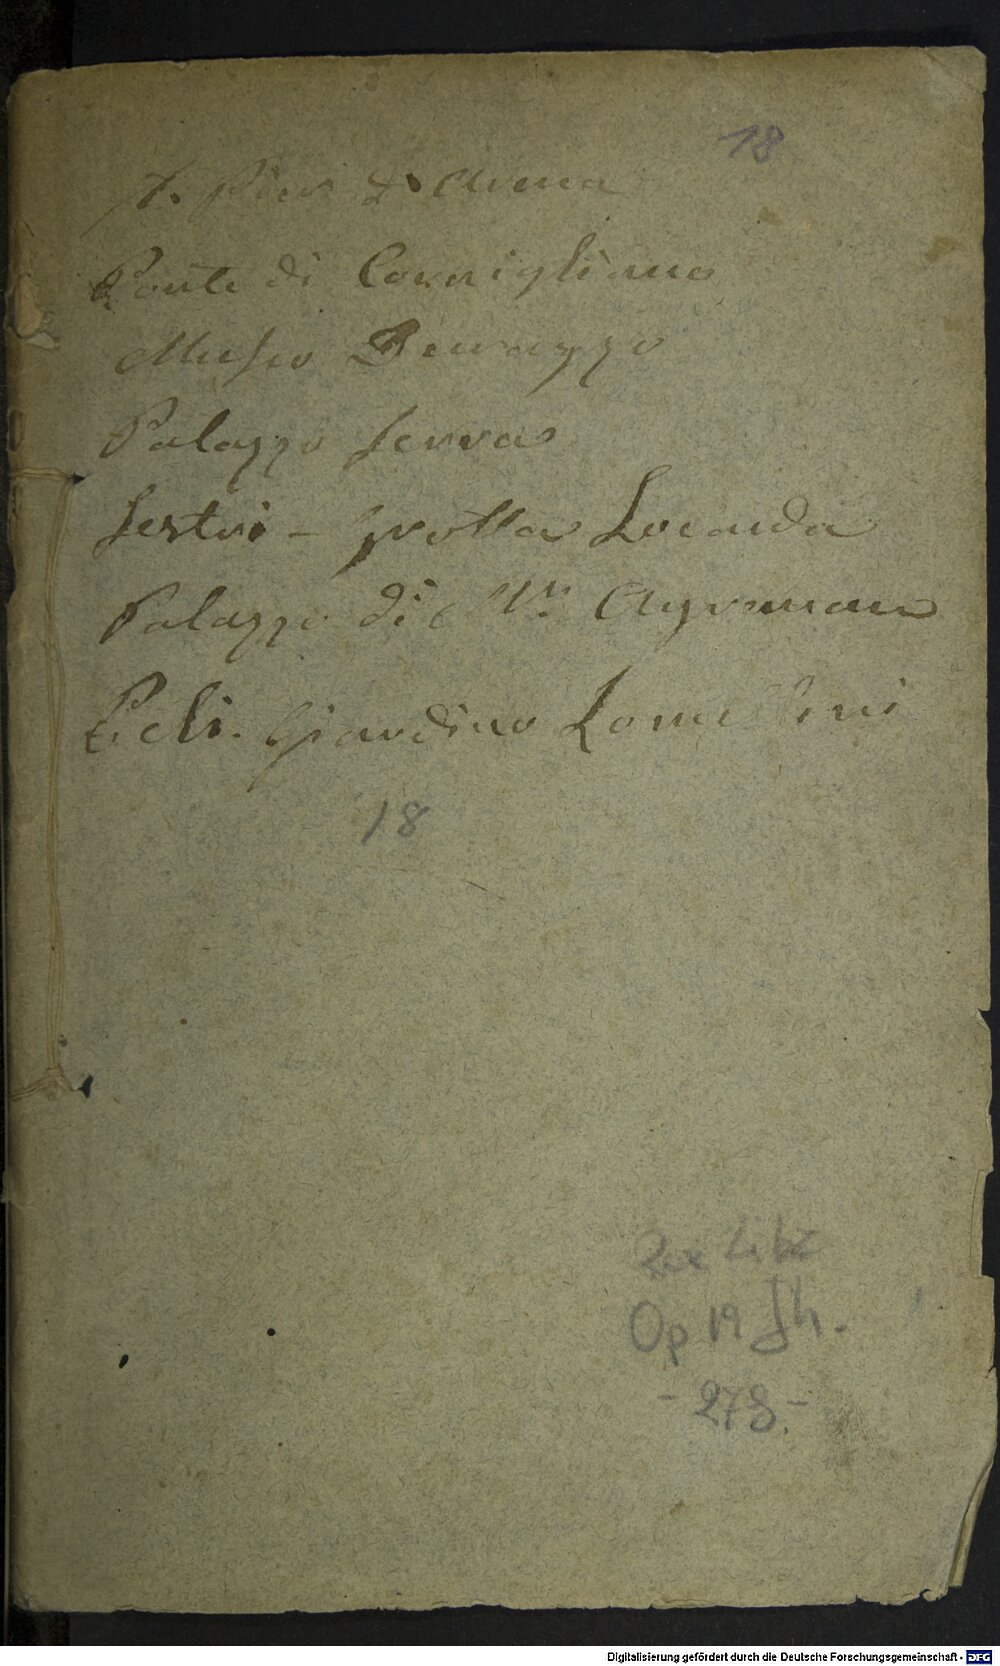 18
S. Pier d'Arena
Ponte di Cornigliano
Museo Durazzo
Palazzo Serra
Sestri - grotta Locanda
Palazzo di Mr.
Peli. Giardino Lomellini
18
Op 19
- 273. -
Digitalisierung gefördert durch die Deutsche Forschungsgemeinschaft - DFG